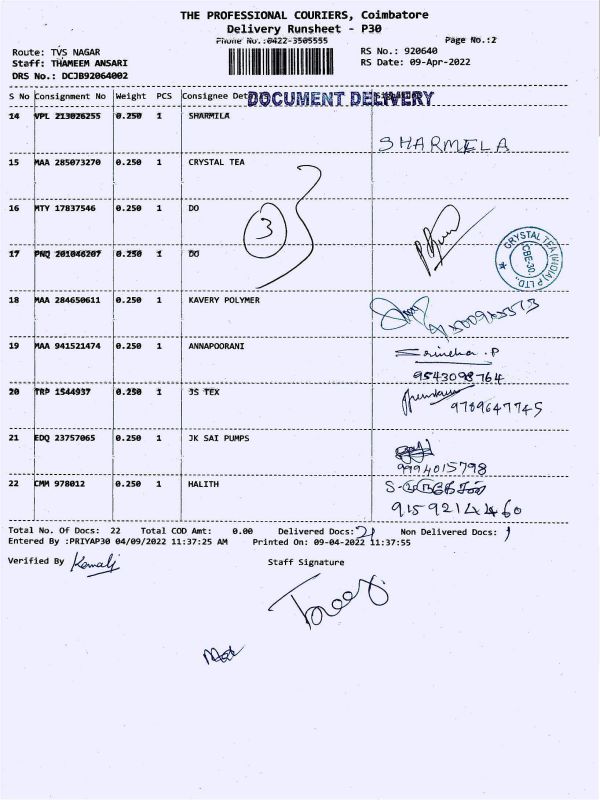 THE PROFESSIONAL COURIERS, Coimbatore
Delivery Runsheet - P30
Phone No.:0422-3505555
Page No.:2
Route: TVS NAGAR
RS No.: 920640
Staff: THAMEEM ANSARI
RS Date: 09-Apr-2022
DRS No.: DCJB92064002
S No Consignment No Weight PCS Consignee
DOCUMENT DELIVERY
14 VPL 213026255 0.250 1 SHARMILA
SHARMELA
15 MAA 285073270 0.250 1 CRYSTAL TEA
16 MTY 17837546 0.250 1 DO
3
17 PNQ 201046207 0.250 1 DO
CRYSTAL TEA (INDIA) P LTD.
CBE-30
18 MAA 284650611 0.250 1 KAVERY POLYMER
19 MAA 941521474 0.250 1 ANNAPOORANI
9543098764
20 TRP 1544937 0.250 1 JS TEX
9789647745
21 EDQ 23757065 0.250 1 JK SAI PUMPS
9994015798
22 CMM 978012 0.250 1 HALITH
9159214460
Total No. Of Docs: 22 Total COD Amt: 0.00 Delivered Docs: 21 Non Delivered Docs: 1
Entered By :PRIYAP30 04/09/2022 11:37:25 AM Printed On: 09-04-2022 11:37:55
Verified By Kamalj
Staff Signature